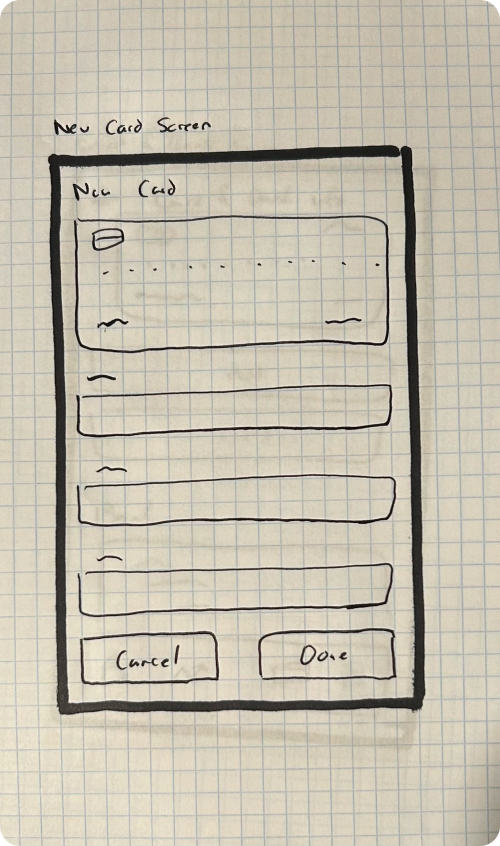 New Card Screen
New Card
Cancel
Done